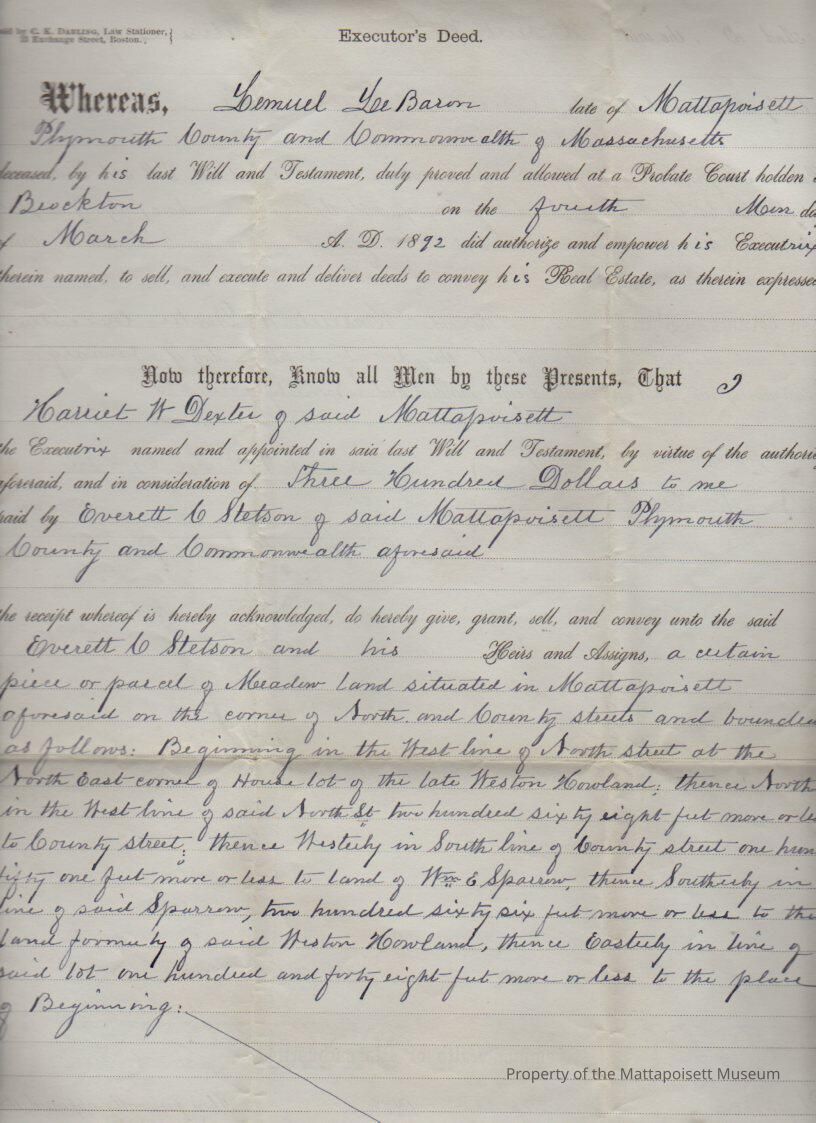 by C. K. Darling, Law Stationer,
Exchange Street, Boston.
Executor's Deed.
Whereas, Lemuel Le Baron late of Mattapoisett
Plymouth County and Commonwealth of Massachusetts
deceased, by his last Will and Testament, duly proved and allowed at a Probate Court holden
Brockton on the fourth Mon da
March A. D. 1892 did authorize and empower his Executrix
therein named, to sell, and execute and deliver deeds to convey his Real Estate, as therein expressed
Now therefore, Know all Men by these Presents, That I
Harriet W Dexter of said Mattapoisett
the Executrix named and appointed in said last Will and Testament, by virtue of the authority
aforesaid, and in consideration of Three Hundred Dollars to me
paid by Everett C Stetson of said Mattapoisett Plymouth
County and Commonwealth aforesaid
the receipt whereof is hereby acknowledged, do hereby give, grant, sell, and convey unto the said
Everett C Stetson and his Heirs and Assigns, a certain
piece or parcel of Meadow land situated in Mattapoisett
aforesaid on the corner of North and County streets and bounded
as follows: Beginning in the West line of North street at the
North East corner of House lot of the late Weston Howland; thence North
in the West line of said North St two hundred sixty eight feet more or le
to County street; thence Westerly in South line of County street one hun
fifty one feet more or less to land of Wm E Sparrow, thence Southerly in
line of said Sparrow, two hundred sixty six feet more or less to the
land formerly of said Weston Howland, thence Easterly in line of
said lot one hundred and forty eight feet more or less to the place
of Beginning:
Property of the Mattapoisett Museum